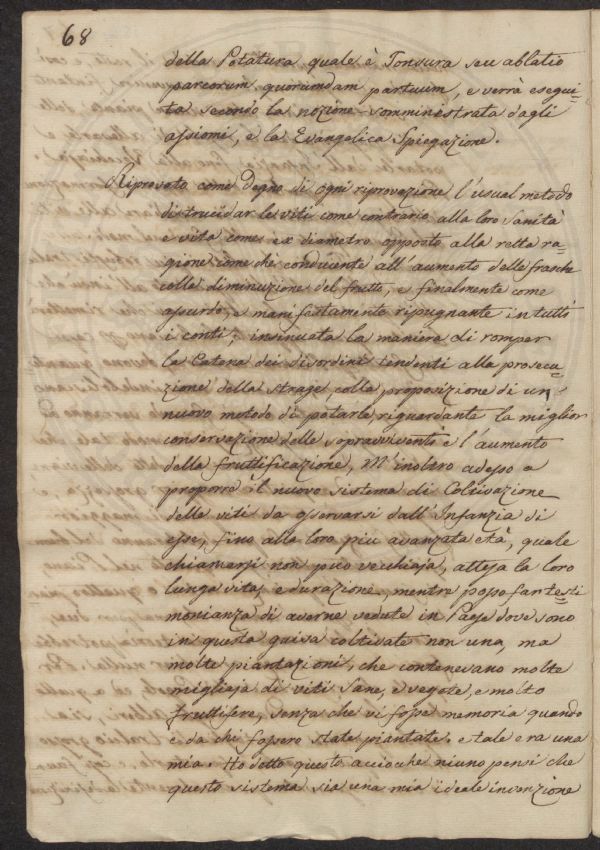 68
della Potatura quale è Tonsura seu ablatio
parcorum quorumdam partuum, e verrà esegui-
ta secondo la nozione somministrata dagli
assiomi, e la Evangelica Spiegazione.
Riprovato come Degno di ogni riprovazione l'usual metodo
di trucidar le viti come contrario alla loro Sanità
e vita come ex diametro opposto alla retta ra-
gione come che conducente all'aumento delle frasche
colla diminuzione del frutto, e finalmente come
assurdo, e manifestamente ripugnante in tutti
i conti; insinuata la maniera di romper
la Catena dei disordini tendenti alla prosecu-
zione della strage, colla proposizione di un
nuovo metodo di potarle, riguardante la miglior
conservazione delle sopravvivente e l'aumento
della fruttificazione, M'inoltro adesso a
proporre il nuovo sistema di Coltivazione
delle viti da osservarsi dall'Infanzia di
esse, fino alla loro più avanzata età, quale
chiamarsi non può vecchiaja, attesa la loro
lunga vita, e durazione, mentre posso far testi-
monianza di averne vedute in Paese dove sono
in questa guisa coltivate non una, ma
molte piantazioni, che contenevano molte
migliaja di viti Sane, e vegete, e molto
fruttifere, senza che vi fosse memoria quando
e da che fossero state piantate. e tale era una
mia. Ho detto questo acciochè niuno pensi che
questo sistema sia una mia ideale invenzione